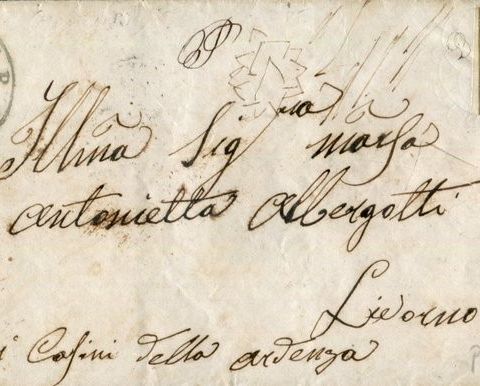 Illm̃a Sigra mãrsa
Antonietta Albergotti
Livorno
Casini della Ardenza